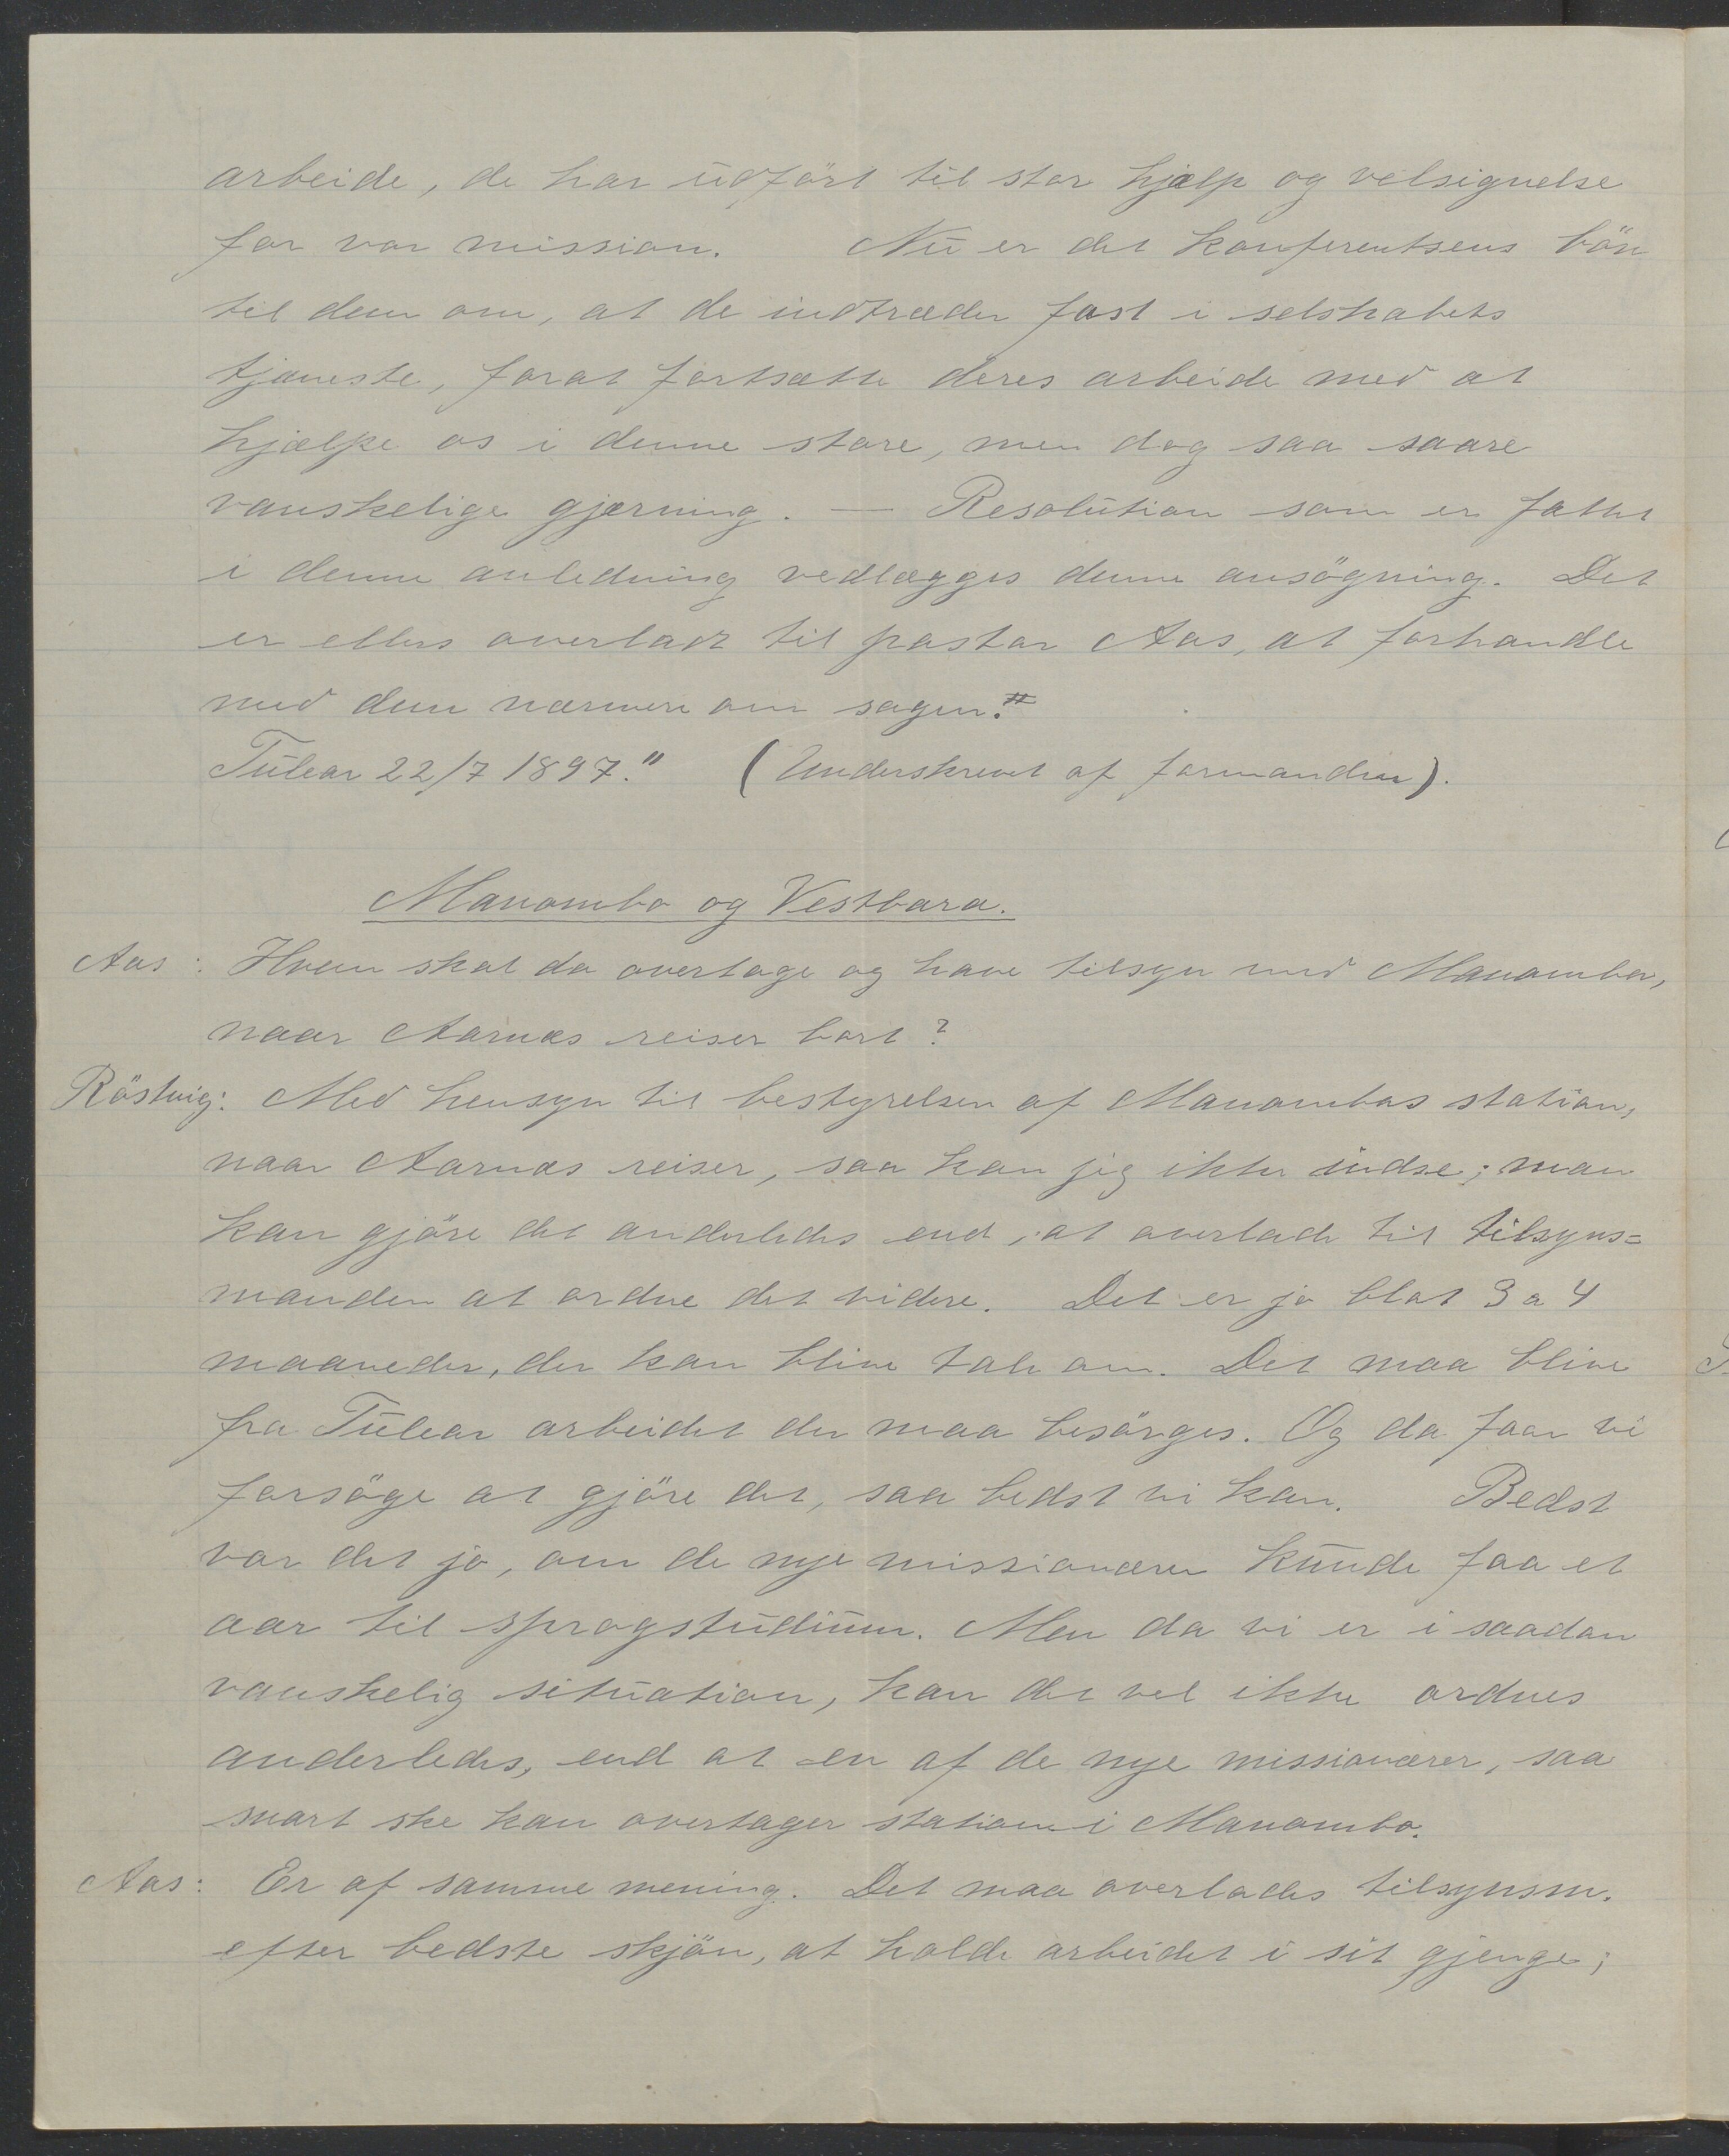 arbeide, de har udfört til stor hjælp og velsignelse
for vor mission. Nu er det konferentsens bön
til dem om, at de indtræder fast i selskabets
tjeneste, forat fortsætte deres arbeide med at
hjælpe os i denne store, men dog saa saare
vanskelige gjærning. — Resolution som er fattet
i denne anledning vedlægges denne ansögning. Det
er ellers overladt til pastor Aas, at forhandle
med dem nærmere om sagen.
Tulear 22/7 1897." (Underskrevet af formanden).
Manombo og Vestbara.
Aas: Hvem skal da overtage og have tilsyn med Manombo,
naar Aarnæs reiser bort?
Röstvig: Med hensyn til bestyrelsen af Manombos station,
naar Aarnæs reiser, saa kan jeg ikke indse; man
kan gjöre det anderledes end, at overlade til tilsyns=
manden at ordne det videre. Det er jo blot 3 a 4
maaneder, der kan blive tale om. Det maa blive
fra Tulear arbeidet der maa besörges. Og da faar vi
forsöge at gjöre det, saa bedst vi kan. Bedst
var det jo, om de nye missionærer kunde faa et
aar til sprogstudium. Men da vi er i saadan
vanskelig situation, kan det vel ikke ordnes
anderledes, end at en af de nye missionærer, saa
snart ske kan overtager station i Manombo.
Aas: Er af samme mening. Det maa overlades tilsynsm.
efter bedste skjön, at holde arbeidet i sit gjenge;